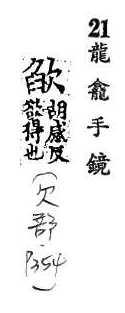 21 龍龕手鏡
欿
胡感反
欲得也
(欠部 P354)